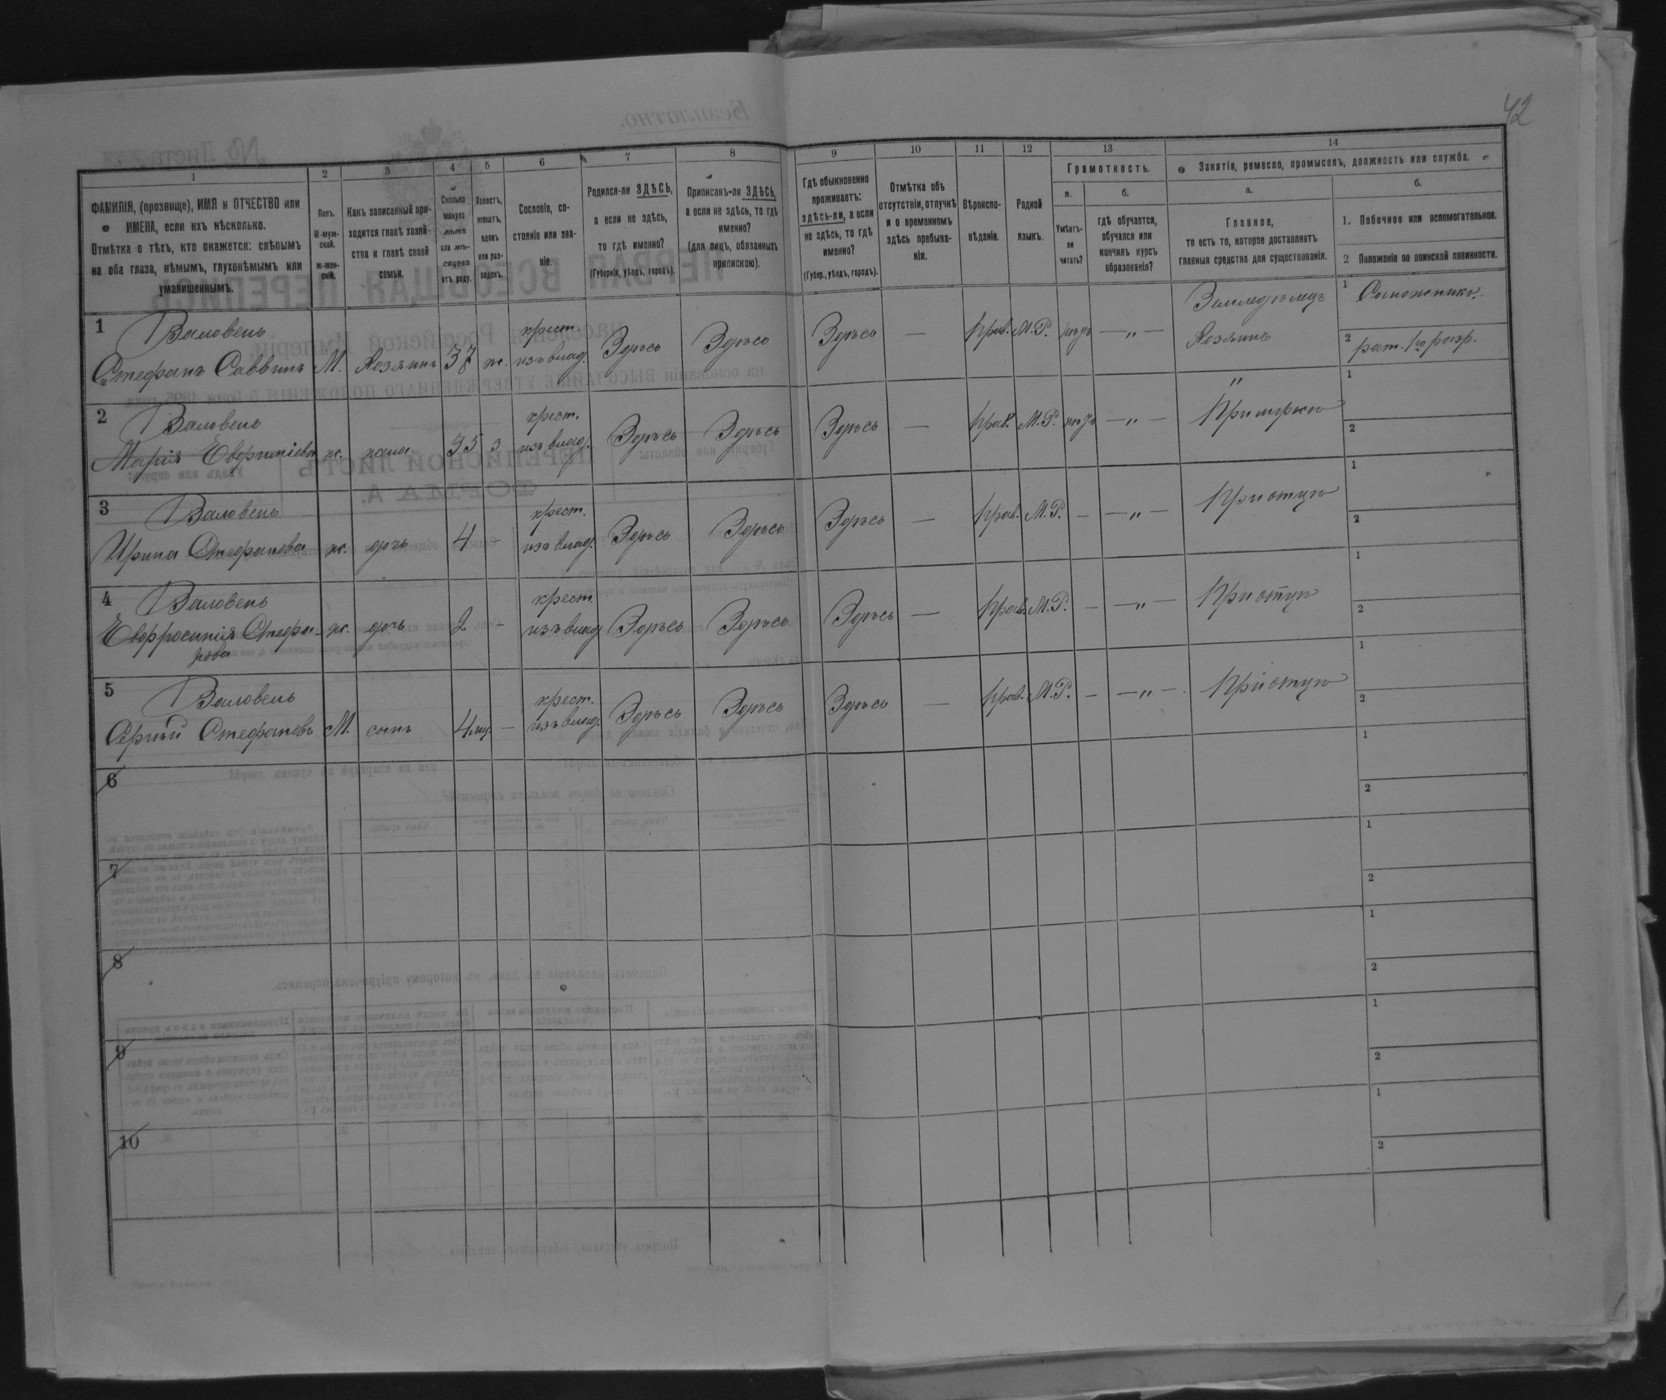 42
1 2 3 4 5 6 7 8 9 10 11 12 13 14
ФАМИЛІЯ, (прозвище), ИМЯ и ОТЧЕСТВО или
ИМЕНА, если ихъ нѣсколько.
Отмѣтка о тѣхъ, кто окажется: слѣпымъ
на оба глаза, нѣмымъ, глухонѣмымъ или
умалишеннымъ.
Полъ.
М-муж-
ской.
ж-жен-
скій.
Какъ записанный при-
ходится главѣ хозяй-
ства и главѣ своей
семьи.
Сколько
минуло
лѣтъ
или мѣ-
сяцевъ
отъ роду.
Холостъ,
женатъ,
вдовъ
или раз-
веденъ.
Сословіе, со-
стояніе или зва-
ніе.
Родился-ли ЗДѢСЬ,
а если не здѣсь,
то гдѣ именно?
(Губернія, уѣздъ, городъ).
Приписанъ-ли ЗДѢСЬ,
а если не здѣсь, то гдѣ
именно?
(для лицъ, обязанныхъ
припискою).
Гдѣ обыкновенно
проживаетъ:
здѣсь-ли, а если
не здѣсь, то гдѣ
именно?
(Губер., уѣздъ, городъ).
Отмѣтка объ
отсутствіи, отлучкѣ
и о временномъ
здѣсь пребыва-
ніи.
Вѣроиспо-
вѣданіе.
Родной
языкъ.
Грамотность.
а.
Умѣетъ-
ли
читать?
б.
гдѣ обучается,
обучался или
кончилъ курсъ
образованія?
Занятіе, ремесло, промыселъ, должность или служба.
а.
Главное,
то есть то, которое доставляетъ
главныя средства для существованія.
б.
1. Побочное или вспомогательное.
2 Положеніе по воинской повинности.
1 Валовень
Стефанъ Саввинъ М. Хозяинъ 37 ж. крест. изъ влад. Здѣсь Здѣсь Здѣсь — прав. М.Р. — „ — Земледѣлецъ Хозяинъ 1
2 рат. 1го разр.
2 Валовень
Марія ж. жена 35 з крест. изъ влад. Здѣсь Здѣсь Здѣсь — прав. М.Р. — „ — „ 1
2
3 Валовень
Ирина Стефанова ж. дочь 4 - крест. изъ влад. Здѣсь Здѣсь Здѣсь — прав. М.Р. - — „ — 1
2
4 Валовень
Евфросинія Стефа-
нова ж. дочь 2 - крест. изъ влад. Здѣсь Здѣсь Здѣсь — прав. М.Р. - — „ — 1
2
5 Валовень
Стефановъ М. сынъ 4 мц. - крест. изъ влад. Здѣсь Здѣсь Здѣсь — прав. М.Р. - — „ — 1
2
6 1
2
7 1
2
8 1
2
9 1
2
10 1
2